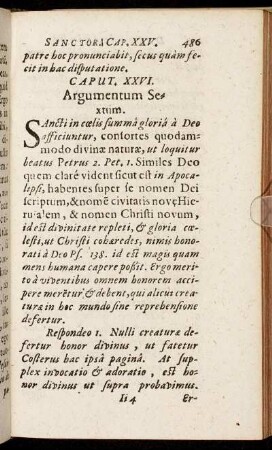 SANCTOR. CAP. XXV. 486
patre hoc pronunciabit, secus quàm fe-
cit in hac disputatione.
CAPUT. XXVI.
Argumentum Se-
xtum.
SAncti in cœlis summâ gloriâ à Deo
afficiuntur, consortes quodam-
modo divinæ naturæ, ut loquitur
beatus Petrus 2. Pet. 1. Similes Deo
quem clarè vident sicut est in Apoca-
lypsi, habentes super se nomen Dei
scriptum, & nomẽ civitatis novę Hie-
rusalem, & nomen Christi novum,
id est divinitate repleti, & gloria cœ-
lesti, ut Christi cohæredes, nimis hono-
rati à Deo Ps. 138. id est magis quam
mens humana capere possit. Ergo meri-
tò à viventibus omnem honorem acci-
pere merẽtur, & debent, qui alicui crea-
turæ in hoc mundo sine reprehensione
defertur.
Respondeo 1. Nulli creaturæ de-
fertur honor divinus, ut fatetur
Costerus hac ipsâ paginâ. At sup-
plex invocatio & adoratio, est ho-
nor divinus ut supra probavimus.
Ii 4 Er-